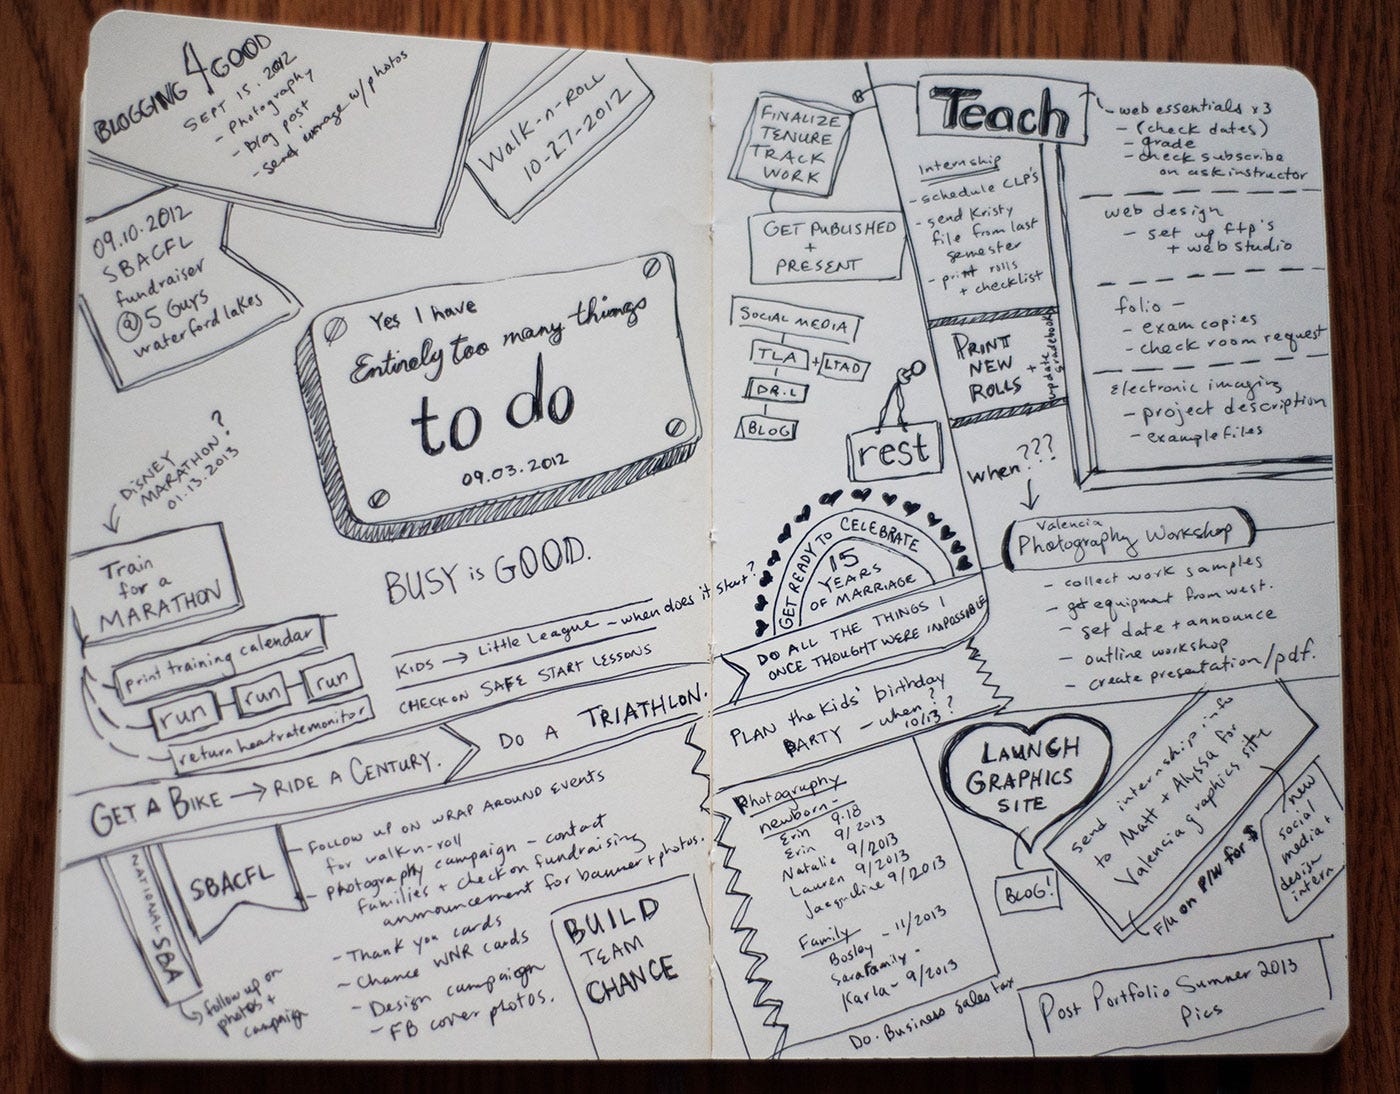 BLOGGING 4 GOOD
SEPT 15. 2012
- Photography
- blog post
- send manage w/photos
Walk-n-Roll
10-27-2012
09.10.2012
SBACFL
fundraiser
@ 5 Guys
waterford lakes
Yes I have
Entirely too many things
to do
09.03.2012
DISNEY
MARATHON?
01.13.2013
Train
for a
MARATHON
print training calendar
run run run
return heartrate monitor
BUSY is GOOD.
KIDS → Little League - when does it start?
CHECK ON SAFE START LESSONS
GET A BIKE → RIDE A CENTURY.
DO A TRIATHLON.
NATIONAL SBA
follow up on
photos +
campaign
SBACFL
- FOLLOW UP ON WRAP AROUND EVENTS
for walk-n-roll
- photography campaign - contact
families + check on fundraising
announcement for banner + photos.
- Thank you cards
- Chance WNR cards
- Design campaign
- FB cover photos.
BUILD
TEAM
CHANCE
FINALIZE
TENURE
TRACK
WORK
GET PUBLISHED
+
PRESENT
SOCIAL MEDIA
TLA + LTAD
DR. L
BLOG
rest
Teach
Internship
- schedule CLP's
- send Kristy
file from last
semester
- print rolls
+ checklist
PRINT
NEW
ROLLS
+ update
gradebook
- web essentials x3
- (check dates)
- grade
- check subscribe
on ask instructor
web design
- set up ftp's
+ web studio
folio -
- exam copies
- check room request
Electronic imaging
- project description
- example files
when???
Valencia
Photography Workshop
- collect work samples
- get equipment from west.
- set date + announce
- outline workshop
- create presentation/pdf.
GET READY TO CELEBRATE
15
YEARS
OF MARRIAGE
DO ALL THE THINGS I
ONCE THOUGHT WERE IMPOSSIBLE
PLAN the kids' birthday
PARTY - when?
10/13?
Photography
newborn -
Erin 9.18
Erin 9/2013
Natalie 9/2013
Lauren 9/2013
Jacqueline 9/2013
Family
Bosley - 11/2013
Sara Family -
Karla - 9/2013
Do. Business sales tax
LAUNCH
GRAPHICS
SITE
BLOG!
send internship info
to Matt + Alyssa for
Valencia graphics site
F/u on P/W for $
new
social
media +
design
intern
Post Portfolio Summer 2013
Pics